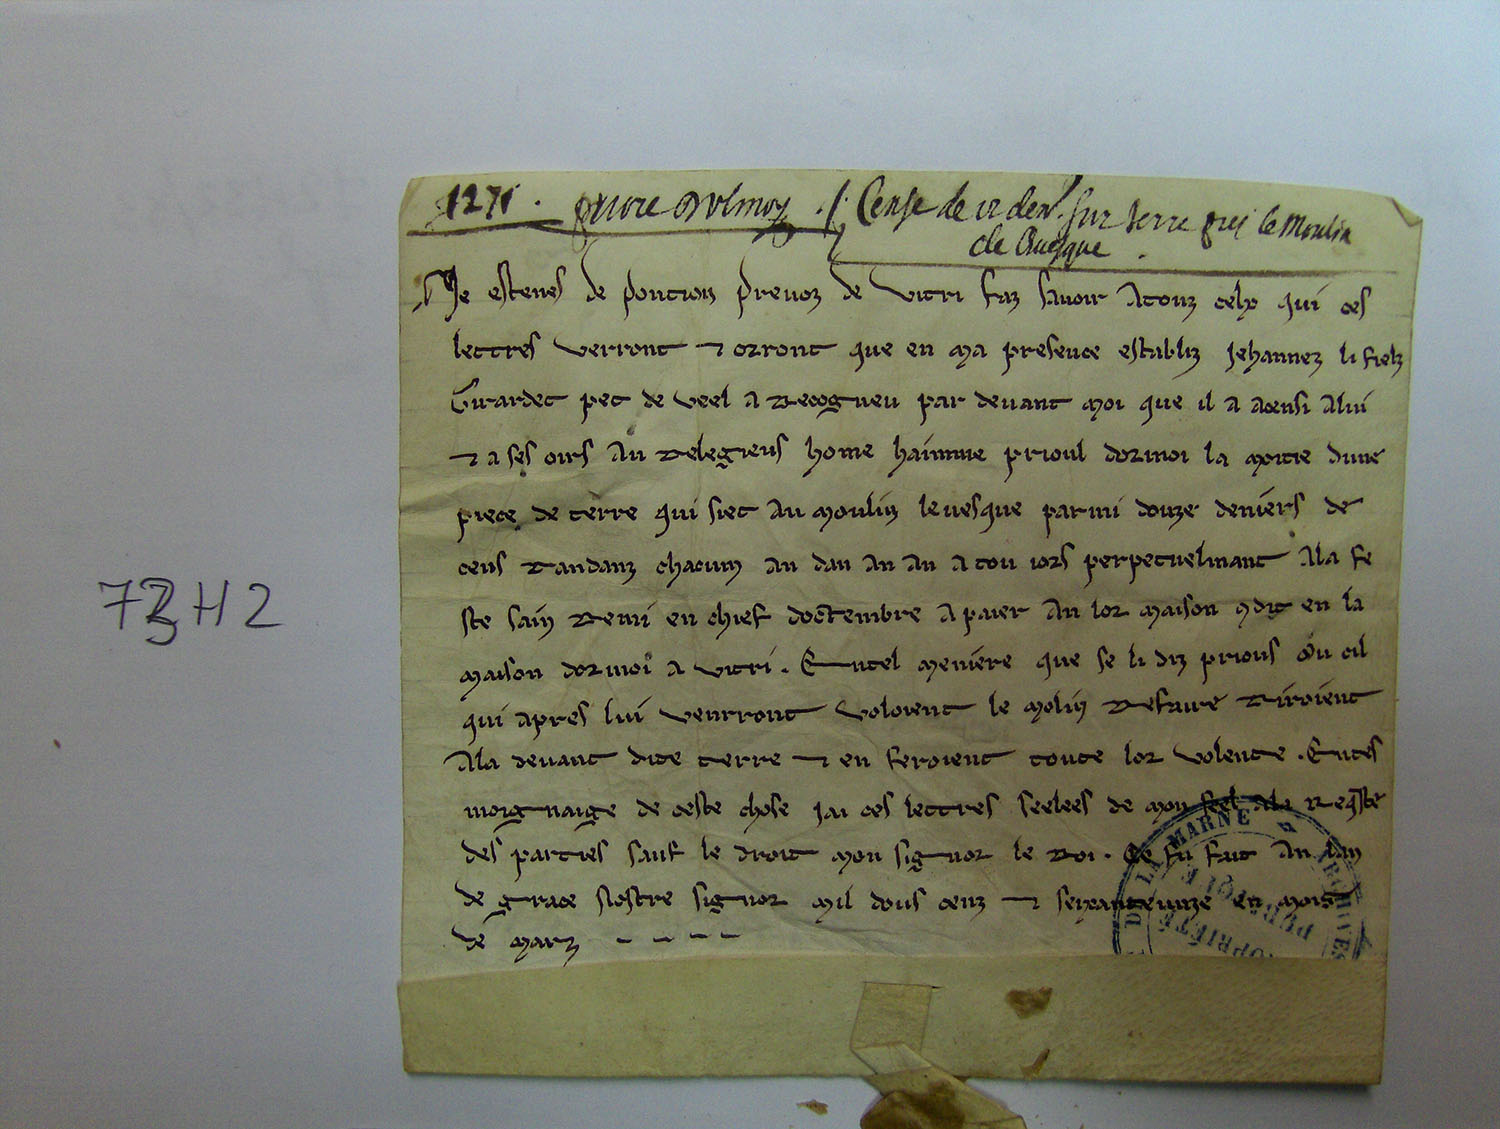 1271. priore d'ulmoy . /. Cense de 12 den. sur terre pres le Moulin
de Vuesque .
Je estenes de poncion prevoz de vitri faz savoir a touz celx qui ces
lettres verront ⁊ orront que en ma presence establiz Jehannez li fielz
Girardet pet de veel a recogneu par devant moi que il a acensi a lui
⁊ a ses oirs au relegieus home haimme prioul dormoi la moitie dune
piece de terre qui siet au moulin levesque parmi douze deniers de
cens randanz chacun an dan an an a tou iors perpetuelmant a la fe
ste sain remi en chief doctembre a paier an lor maison 9dit en la
maison dormoi a vitri . En tel meniere que se li diz prious ou cil
qui apres lui venrront voloient le molin refaire riroient
a la devant dite terre ⁊ en feroient toute lor volente . En tes
moignaige de ceste chose iai ces lettres seelees de mon seel a la reqste
des parties sauf le droit mon signor le roi . Ce fu fait an lan
de grace nostre signor mil dous cenz ⁊ sexanteunze en mois
de marz
73H2
DE LA MARNE
ARCHIVES
PROPRIÉTÉ